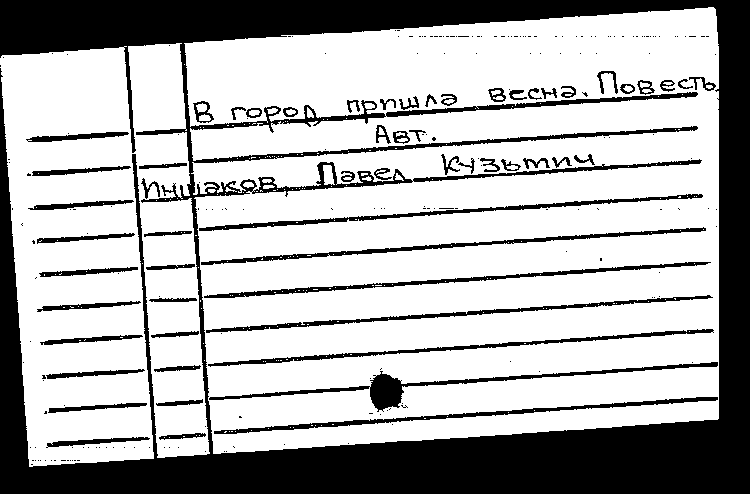 В город пришла весна. Повесть
Авт.
Иншаков, Павел Кузьмич.